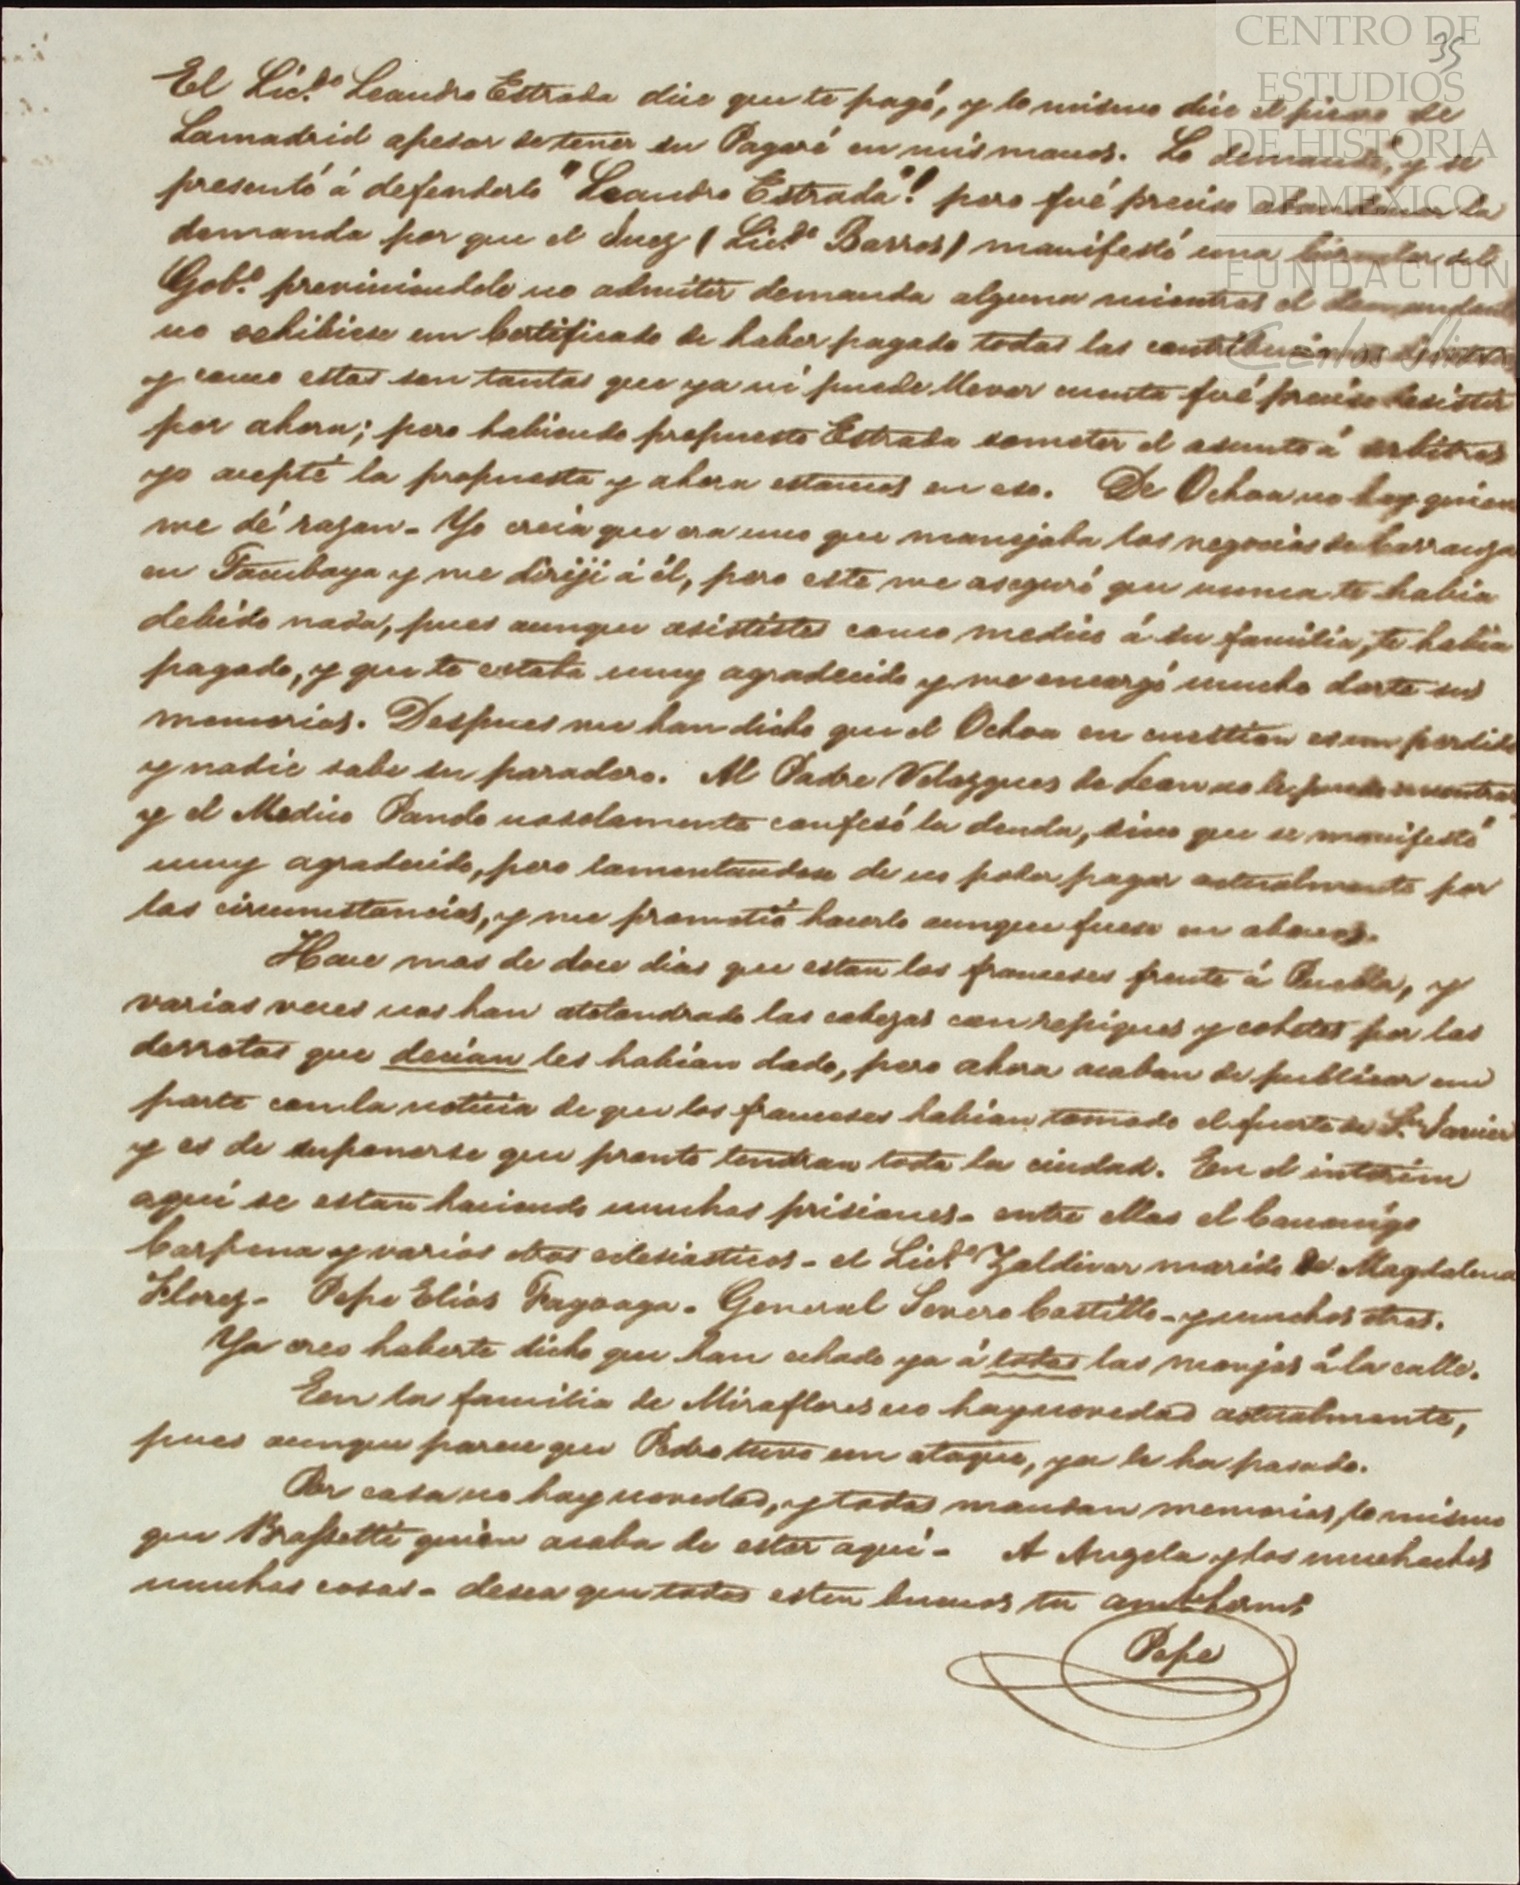 CENTRO DE
ESTUDIOS
DE HISTORIA
DE MEXICO
FUNDACION
Carlos Slim
35
El Lic.do Leandro Estrada dice que te pagó, y lo mismo dice el picaro de
Lamadrid apesar de tener su Pagaré en mis manos. Lo demandé, y se
presentó á defenderlo "Leandro Estrada"! pero fué preciso abandonar la
demanda por que el Juez (Lic.do Barros) manifestó una Circular del
Gob.o previniendole no admitir demanda alguna mientras el demandante
no echibiese un Certificado de haber pagado todas las contribuciones
y como estas son tantas que ya ni puede llevar cuenta fué preciso desistir
por ahora; pero habiendo propuesto Estrada someter el asunto á arbitros
yo acepté la propuesta y ahora estamos en eso. De Ochoa no hay quien
me dé razon - Yo creia que era uno que manejaba los negocios de Carranza
en Tacubaya y me diriji á él, pero este me aseguró que nunca te habia
debido nada, pues aunque asististes como medico á su familia, te habia
pagado, y que te estaba muy agradecido y me encargó mucho darte sus
memorias. Despues me han dicho que el Ochoa en cuestion es un perdido
y nadie sabe su paradero. Al Padre Velazques de Leon no le puedo encontrar
y el Medico Pando no solamente confesó la deuda, sino que se manifestó
muy agradecido, pero lamentandose de no poder pagar actualmente por
las circunstancias, y me prometió hacerlo aunque fuese en abonos.
Hace mas de doce dias que estan los franceses frente á Puebla, y
varias veces nos han atolondrado las cabezas con repiques y cohetes por las
derrotas que decian les habian dado, pero ahora acaban de publicar un
parte con la noticia de que los franceses habian tomado el fuerte de S.n Javier
y es de suponerse que pronto tendran toda la ciudad. En el interin
aqui se estan haciendo muchas prisiones - entre ellas el Canonigo
Carpena y varios otros eclesiasticos - el Lic.do Zaldivar marido de Magdalena
Florez - Pepe Elias Fagoaga - General Severo Castillo - y muchos otros.
Ya creo haberte dicho que han echado ya á todas las monjas á la calle.
En la familia de Miraflores no hay novedad actualmente,
pues aunque parece que Pedro tuvo un ataque, ya le ha pasado.
Por casa no hay novedad, y todos mandan memorias, lo mismo
que Brassetti quien acaba de estar aqui - A Angela y los muchachos
muchas cosas - desea que todos esten buenos tu am.te herm.o
Pepe